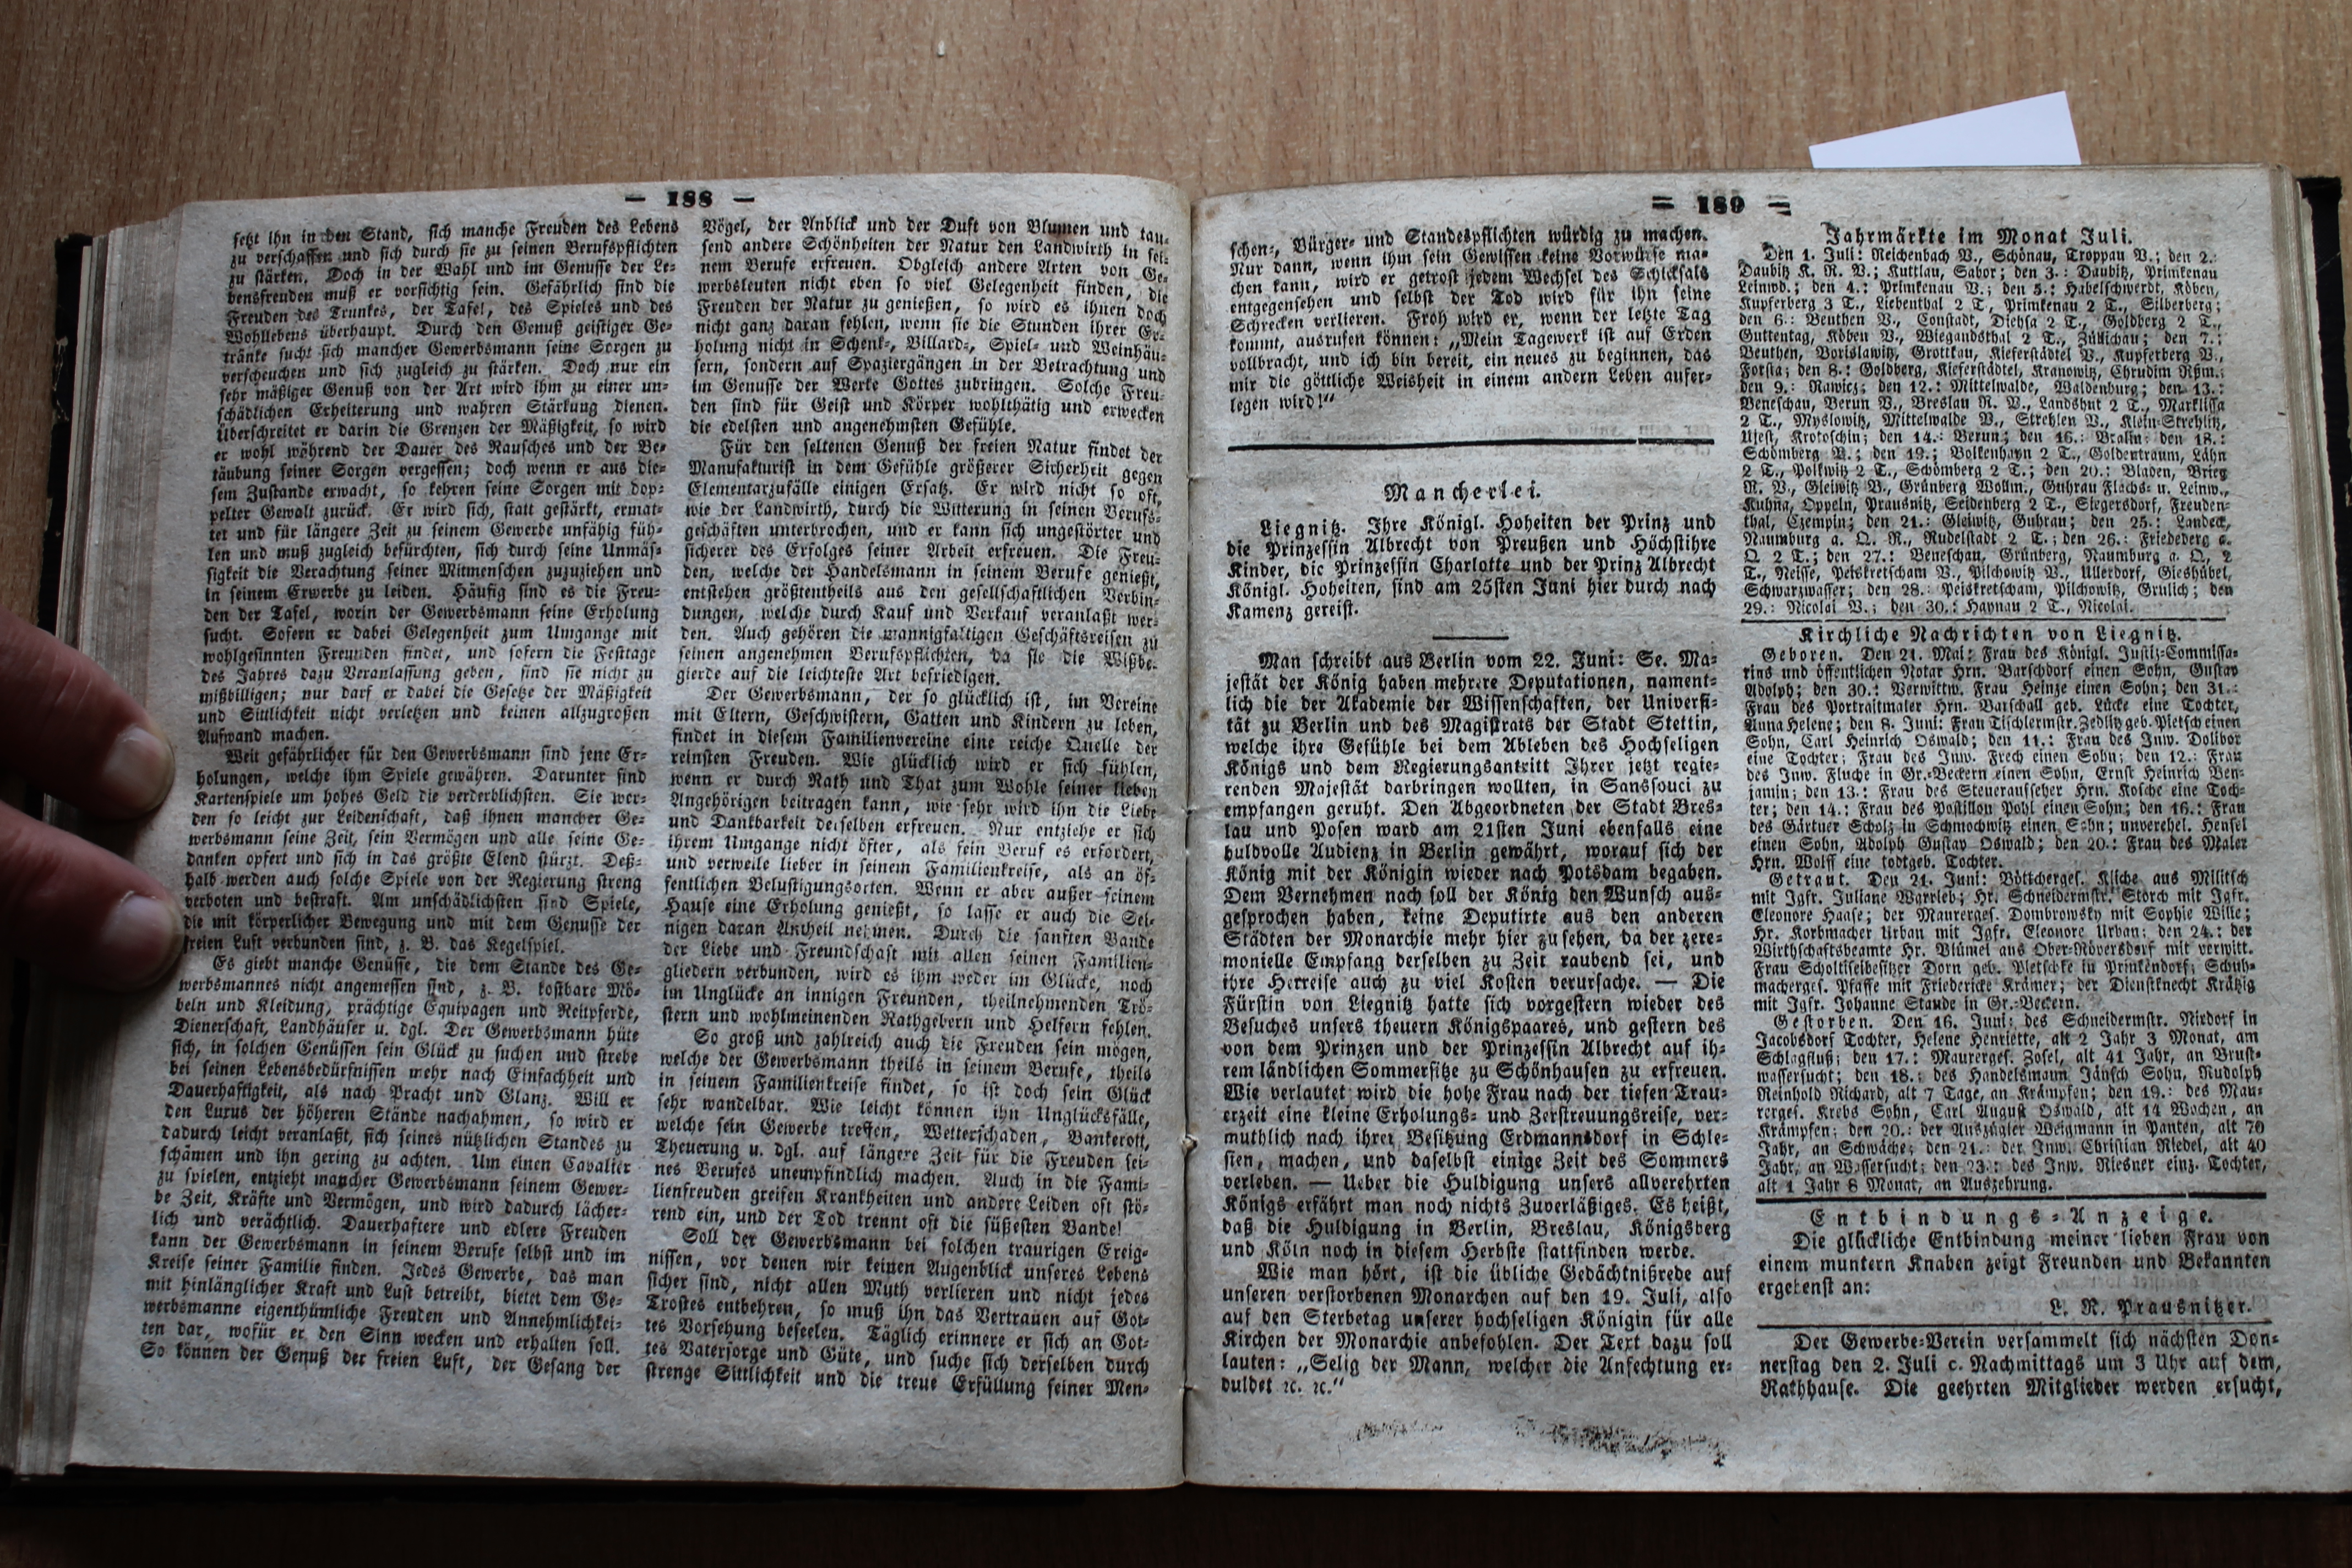 — 188 —
setzt ihn in den Stand, sich manche Freuden des Lebens
zu verschaffen und sich durch sie zu seinen Berufspflichten
zu stärken. Doch in der Wahl und im Genusse der Le-
bensfreuden muß er vorsichtig sein. Gefährlich sind die
Freuden des Trunkes, der Tafel, des Spieles und des
Wohllebens überhaupt. Durch den Genuß geistiger Ge-
tränke sucht sich mancher Gewerbsmann seine Sorgen zu
verscheuchen und sich zugleich zu stärken. Doch nur ein
sehr mäßiger Genuß von der Art wird ihm zu einer un-
schädlichen Erheiterung und wahren Stärkung dienen.
Überschreitet er darin die Grenzen der Mäßigkeit, so wird
er wohl während der Dauer des Rausches und der Be-
täubung seiner Sorgen vergessen; doch wenn er aus die-
sem Zustande erwacht, so kehren seine Sorgen mit dop-
pelter Gewalt zurück. Er wird sich, statt gestärkt, ermat-
tet und für längere Zeit zu seinem Gewerbe unfähig füh-
len und muß zugleich befürchten, sich durch seine Unmäs-
sigkeit die Verachtung seiner Mitmenschen zuzuziehen und
in seinem Erwerbe zu leiden. Häufig sind es die Freu-
den der Tafel, worin der Gewerbsmann seine Erholung
sucht. Sofern er dabei Gelegenheit zum Umgange mit
wohlgesinnten Freunden findet, und sofern die Festtage
des Jahres dazu Veranlassung geben, sind sie nicht zu
mißbilligen; nur darf er dabei die Gesetze der Mäßigkeit
und Sittlichkeit nicht verletzen und keinen allzugroßen
Aufwand machen.
Weit gefährlicher für den Gewerbsmann sind jene Er-
holungen, welche ihm Spiele gewähren. Darunter sind
Kartenspiele um hohes Geld die verderblichsten. Sie wer-
den so leicht zur Leidenschaft, daß ihnen mancher Ge-
werbsmann seine Zeit, sein Vermögen und alle seine Ge-
danken opfert und sich in das größte Elend stürzt. Deß-
halb werden auch solche Spiele von der Regierung streng
verboten und bestraft. Am unschädlichsten sind Spiele,
die mit körperlicher Bewegung und mit dem Genusse der
freien Luft verbunden sind, z. B. das Kegelspiel.
Es giebt manche Genüsse, die dem Stande des Ge-
werbsmannes nicht angemessen sind, z. B. kostbare Mö-
beln und Kleidung, prächtige Equipagen und Reitpferde,
Dienerschaft, Landhäuser u. dgl. Der Gewerbsmann hüte
sich, in solchen Genüssen sein Glück zu suchen und strebe
bei seinen Lebensbedürfnissen mehr nach Einfachheit und
Dauerhaftigkeit, als nach Pracht und Glanz. Will er
den Luxus der höheren Stände nachahmen, so wird er
dadurch leicht veranlaßt, sich seines nützlichen Standes zu
schämen und ihn gering zu achten. Um einen Cavalier
zu spielen, entzieht mancher Gewerbsmann seinem Gewer-
be Zeit, Kräfte und Vermögen, und wird dadurch lächer-
lich und verächtlich. Dauerhaftere und edlere Freuden
kann der Gewerbsmann in seinem Berufe selbst und im
Kreise seiner Familie finden. Jedes Gewerbe, das man
mit hinlänglicher Kraft und Lust betreibt, bietet dem Ge-
werbsmanne eigenthümliche Freuden und Annehmlichkei-
ten dar, wofür er den Sinn wecken und erhalten soll.
So können der Genuß der freien Luft, der Gesang der
Vögel, der Anblick und der Duft von Blumen und tau-
send andere Schönheiten der Natur den Landwirth in sei-
nem Berufe erfreuen. Obgleich andere Arten von Ge-
werbsleuten nicht eben so viel Gelegenheit finden, die
Freuden der Natur zu genießen, so wird es ihnen doch
nicht ganz daran fehlen, wenn sie die Stunden ihrer Er-
holung nicht in Schenk-, Billard-, Spiel- und Weinhäu-
sern, sondern auf Spaziergängen in der Betrachtung und
im Genusse der Werke Gottes zubringen. Solche Freu-
den sind für Geist und Körper wohlthätig und erwecken
die edelsten und angenehmsten Gefühle.
Für den seltenen Genuß der freien Natur findet der
Manufakturist in dem Gefühle größerer Sicherheit gegen
Elementarzufälle einigen Ersatz. Er wird nicht so oft,
wie der Landwirth, durch die Witterung in seinen Berufs-
geschäften unterbrochen, und er kann sich ungestörter und
sicherer des Erfolges seiner Arbeit erfreuen. Die Freu-
den, welche der Handelsmann in seinem Berufe genießt,
entstehen größtentheils aus den gesellschaftlichen Verbin-
dungen, welche durch Kauf und Verkauf veranlaßt wer-
den. Auch gehören die mannigfaltigen Geschäftsreisen zu
seinen angenehmen Berufspflichten, da sie die Wißbe-
gierde auf die leichteste Art befriedigen.
Der Gewerbsmann, der so glücklich ist, im Vereine
mit Eltern, Geschwistern, Gatten und Kindern zu leben,
findet in diesem Familienvereine eine reiche Quelle der
reinsten Freuden. Wie glücklich wird er sich fühlen,
wenn er durch Rath und That zum Wohle seiner lieben
Angehörigen beitragen kann, wie sehr wird ihn die Liebe
und Dankbarkeit derselben erfreuen. Nur entziehe er sich
ihrem Umgange nicht öfter, als sein Beruf es erfordert,
und verweile lieber in seinem Familienkreise, als an öf-
fentlichen Belustigungsorten. Wenn er aber außer seinem
Hause eine Erholung genießt, so lasse er auch die Sei-
nigen daran Antheil nehmen. Durch die sanften Bande
der Liebe und Freundschaft mit allen seinen Familien-
gliedern verbunden, wird es ihm weder im Glücke, noch
im Unglücke an innigen Freunden, theilnehmenden Trö-
stern und wohlmeinenden Rathgebern und Helfern fehlen.
So groß und zahlreich auch die Freuden sein mögen,
welche der Gewerbsmann theils in seinem Berufe, theils
in seinem Familienkreise findet, so ist doch sein Glück
sehr wandelbar. Wie leicht können ihn Unglücksfälle,
welche sein Gewerbe treffen, Wetterschaden, Bankerott,
Theuerung u. dgl. auf längere Zeit für die Freuden sei-
nes Berufes unempfindlich machen. Auch in die Fami-
lienfreuden greifen Krankheiten und andere Leiden oft stö-
rend ein, und der Tod trennt oft die süßesten Bande!
Soll der Gewerbsmann bei solchen traurigen Ereig-
nissen, vor denen wir keinen Augenblick unseres Lebens
sicher sind, nicht allen Muth verlieren und nicht jedes
Trostes entbehren, so muß ihn das Vertrauen auf Got-
tes Vorsehung beseelen. Täglich erinnere er sich an Got-
tes Vatersorge und Güte, und suche sich derselben durch
strenge Sittlichkeit und die treue Erfüllung seiner Men-
= 189 =
schen-, Bürger- und Standespflichten würdig zu machen.
Nur dann, wenn ihm sein Gewissen keine Vorwürfe ma-
chen kann, wird er getrost jedem Wechsel des Schicksals
entgegensehen und selbst der Tod wird für ihn seine
Schrecken verlieren. Froh wird er, wenn der letzte Tag
kommt, ausrufen können: „Mein Tagewerk ist auf Erden
vollbracht, und ich bin bereit, ein neues zu beginnen, das
mir die göttliche Weisheit in einem andern Leben aufer-
legen wird!“
Mancherlei.
Liegnitz. Ihre Königl. Hoheiten der Prinz und
die Prinzessin Albrecht von Preußen und Höchstihre
Kinder, die Prinzessin Charlotte und der Prinz Albrecht
Königl. Hoheiten, sind am 25sten Juni hier durch nach
Kamenz gereist.
Man schreibt aus Berlin vom 22. Juni: Se. Ma-
jestät der König haben mehrere Deputationen, nament-
lich die der Akademie der Wissenschaften, der Universi-
tät zu Berlin und des Magistrats der Stadt Stettin,
welche ihre Gefühle bei dem Ableben des Hochseligen
Königs und dem Regierungsantritt Ihrer jetzt regie-
renden Majestät darbringen wollten, in Sanssouci zu
empfangen geruht. Den Abgeordneten der Stadt Bres-
lau und Posen ward am 21sten Juni ebenfalls eine
huldvolle Audienz in Berlin gewährt, worauf sich der
König mit der Königin wieder nach Potsdam begaben.
Dem Vernehmen nach soll der König den Wunsch aus-
gesprochen haben, keine Deputirte aus den anderen
Städten der Monarchie mehr hier zu sehen, da der zere-
monielle Empfang derselben zu Zeit raubend sei, und
ihre Herreise auch zu viel Kosten verursache. — Die
Fürstin von Liegnitz hatte sich vorgestern wieder des
Besuches unsers theuern Königspaares, und gestern des
von dem Prinzen und der Prinzessin Albrecht auf ih-
rem ländlichen Sommersitze zu Schönhausen zu erfreuen.
Wie verlautet wird die hohe Frau nach der tiefen Trau-
erzeit eine kleine Erholungs- und Zerstreuungsreise, ver-
muthlich nach ihrer Besitzung Erdmannsdorf in Schle-
sien, machen, und daselbst einige Zeit des Sommers
verleben. — Ueber die Huldigung unsers allverehrten
Königs erfährt man noch nichts Zuverläßiges. Es heißt,
daß die Huldigung in Berlin, Breslau, Königsberg
und Köln noch in diesem Herbste stattfinden werde.
Wie man hört, ist die übliche Gedächtnißrede auf
unseren verstorbenen Monarchen auf den 19. Juli, also
auf den Sterbetag unserer hochseligen Königin für alle
Kirchen der Monarchie anbefohlen. Der Text dazu soll
lauten: „Selig der Mann, welcher die Anfechtung er-
duldet ꝛc. ꝛc.“
Jahrmärkte im Monat Juli.
Den 1. Juli: Reichenbach V., Schönau, Troppau V.; den 2.:
Daubitz K. R. V.; Kuttlau, Sabor; den 3.: Daubitz, Primkenau
Leinwd.; den 4.: Primkenau V.; den 5.: Habelschwerdt, Köben,
Kupferberg 3 T., Liebenthal 2 T., Primkenau 2 T., Silberberg;
den 6.: Beuthen V., Constadt, Diehsa 2 T., Goldberg 2 T.,
Guttentag, Köben V., Wiegandsthal 2 T., Züllichau; den 7.:
Beuthen, Borislawitz, Grottkau, Kieferstädtel V., Kupferberg V.,
Forsta; den 8.: Goldberg, Kieferstädtel, Kranowitz, Chrudim Rßm.;
den 9.: Rawicz; den 12.: Mittelwalde, Waldenburg; den 13.:
Beneschau, Berun V., Breslau R. V., Landshut 2 T., Marklissa
2 T., Myslowitz, Mittelwalde V., Strehlen V., Klein-Strehlitz,
Ujest, Krotoschin; den 14.: Berun; den 16.: Bralin; den 18.:
Schömberg V.; den 19.; Bolkenhayn 2 T., Goldentraum, Lähn
2 T., Polkwitz 2 T., Schömberg 2 T.; den 20.: Bladen, Brieg
R. V., Gleiwitz V., Grünberg Wollm., Guhrau Flachs- u. Leinw.,
Kuhna, Oppeln, Prausnitz, Seidenberg 2 T., Siegersdorf, Freuden-
thal, Czempin; den 21.: Gleiwitz, Guhrau; den 25.: Landeck,
Naumburg a. Q. R., Rudelstadt 2 T.; den 26.: Friedeberg a.
Q. 2 T.; den 27.: Beneschau, Grünberg, Naumburg a. Q. 2
T., Neisse, Peiskretscham V., Pilchowitz V., Ullerdorf, Gieshübel,
Schwarzwasser; den 28.: Peiskretscham, Pilchowitz, Grulich; den
29.: Nicolai V.; den 30.: Haynau 2 T., Nicolai.
Kirchliche Nachrichten von Liegnitz.
Geboren. Den 21. Mai: Frau des Königl. Justiz-Commissa-
rius und öffentlichen Notar Hrn. Barschdorf einen Sohn, Gustav
Adolph; den 30.: Verwittw. Frau Heinze einen Sohn; den 31.:
Frau des Portraitmaler Hrn. Barschall geb. Lücke eine Tochter,
Anna Helene; den 8. Juni: Frau Tischlermstr. Zedlitz geb. Pletsch einen
Sohn, Carl Heinrich Oswald; den 11.: Frau des Inw. Dolibor
eine Tochter; Frau des Inw. Frech einen Sohn; den 12.: Frau
des Inw. Fluche in Gr.-Beckern einen Sohn, Ernst Heinrich Ben-
jamin; den 13.: Frau des Steueraufseher Hrn. Kosche eine Toch-
ter; den 14.: Frau des Postillon Pohl einen Sohn; den 16.: Frau
des Gärtner Scholz in Schmochwitz einen Sohn; unverehel. Hensel
einen Sohn, Adolph Gustav Oswald; den 20.: Frau des Maler
Hrn. Wolff eine todtgeb. Tochter.
Getraut. Den 21. Juni: Böttcherges. Kliche aus Militsch
mit Jgfr. Juliane Warrlieb; Hr. Schneidermstr. Storch mit Jgfr.
Eleonore Haase; der Maurerges. Dombrowsky mit Sophie Wille;
Hr. Korbmacher Urban mit Jgfr. Eleonore Urban; den 24.: der
Wirthschaftsbeamte Hr. Blümel aus Ober-Röversdorf mit verwitt.
Frau Scholtiseibesitzer Dorn geb. Pletschke in Prinkendorf; Schuh-
macherges. Pfaffe mit Friedericke Krämer; der Dienstknecht Krätzig
mit Jgfr. Johanne Staude in Gr.-Beckern.
Gestorben. Den 16. Juni: des Schneidermstr. Nixdorf in
Jacobsdorf Tochter, Helene Henriette, alt 2 Jahr 3 Monat, am
Schlagfluß; den 17.: Maurerges. Zosel, alt 41 Jahr, an Brust-
wassersucht; den 18.: des Handelsmann Jänsch Sohn, Rudolph
Reinhold Richard, alt 7 Tage, an Krämpfen; den 19.: des Mau-
rerges. Krebs Sohn, Carl August Oswald, alt 14 Wochen, an
Krämpfen; den 20.: der Auszügler Weigmann in Panten, alt 70
Jahr, an Schwäche; den 21.: der Inw. Christian Riedel, alt 40
Jahr, an Wassersucht; den 23.: des Inw. Riesner einz. Tochter,
alt 1 Jahr 8 Monat, an Auszehrung.
Entbindungs-Anzeige.
Die glückliche Entbindung meiner lieben Frau von
einem muntern Knaben zeigt Freunden und Bekannten
ergebenst an:
L. R. Prausnitzer.
Der Gewerbe-Verein versammelt sich nächsten Don-
nerstag den 2. Juli c. Nachmittags um 3 Uhr auf dem
Rathhause. Die geehrten Mitglieder werden ersucht,